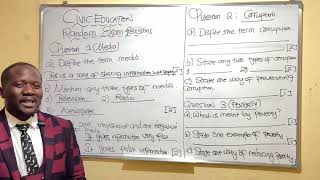 CIVIC EDUCATION
Random Exam Revisions
Question 1 (Media)
a) Define the term media.
This is a way of sharing information with people [2]
b) Mention any three types of media.
1) Television 2) Radio
Newspaper [3]
one importance and one negative
media
gives information very fast
It gives false information [2]
Question 2: Corruption
a) Define the term corruption
[2]
b) State any two types of corruption
1) 2) [2]
c) State one way of preventing
Corruption
[1]
Question 3 (Poverty)
a) What is meant by poverty?
b) State one example of poverty
c) State one way of reducing poverty